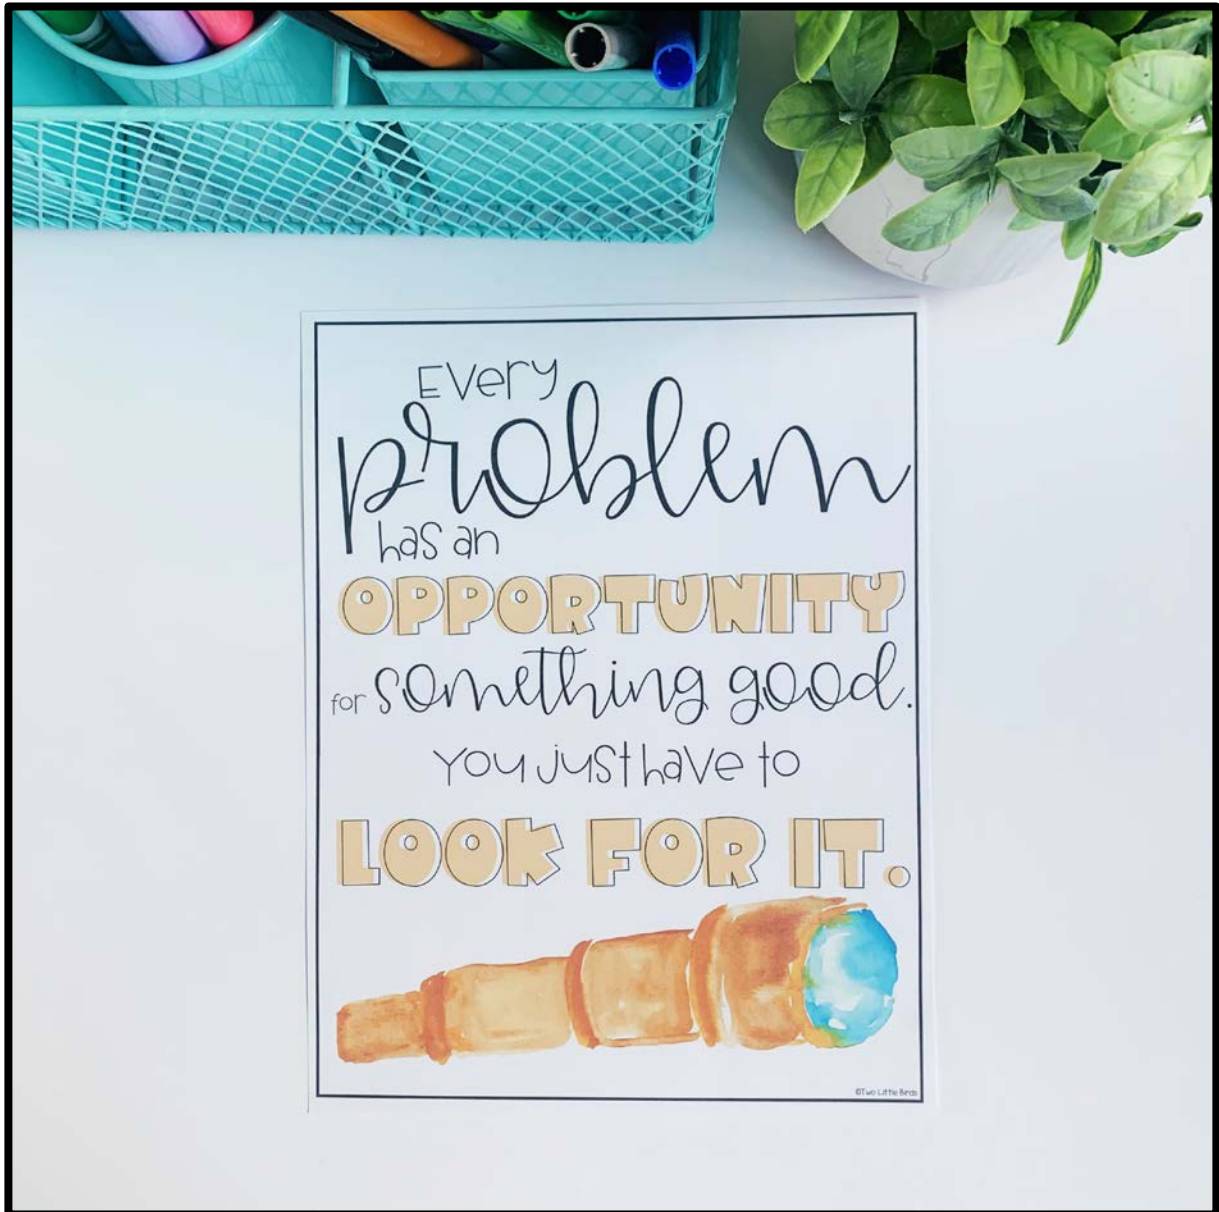 Every
problem
has an
OPPORTUNITY
for something good.
You just have to
LOOK FOR IT.
©Two Little Birds